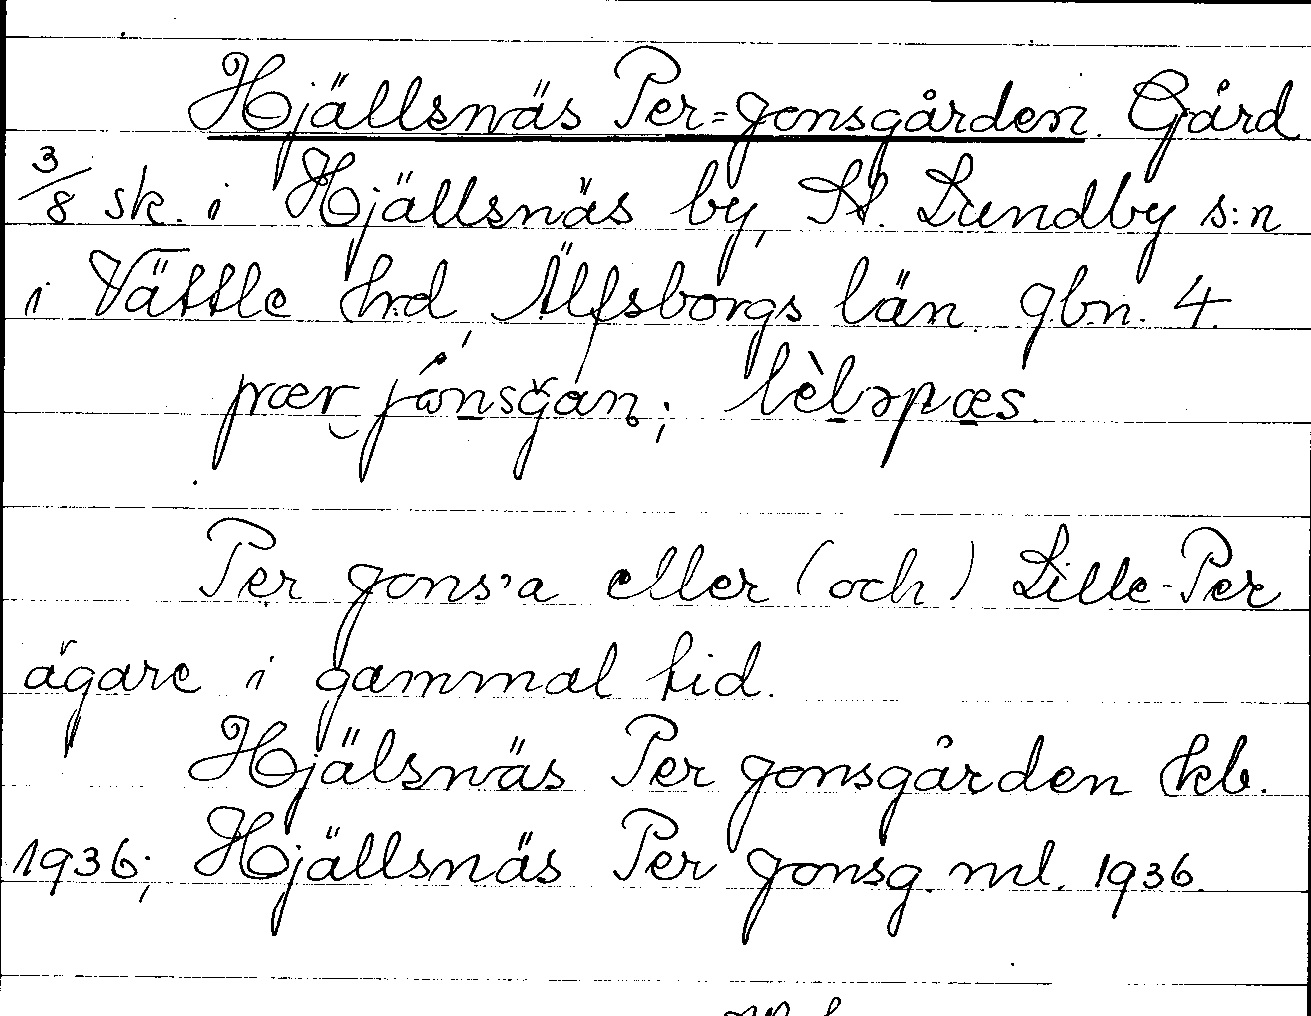 Hjällsnäs Per-Jonsgården. Gård
3/8 sk. i Hjällsnäs by, St. Lundby s:n
i Vättle hd, Älfsborgs län. gbn. 4.
Per Jons'a eller (och) Lille-Per
ägare i gammal tid.
Hjälsnäs Per Jonsgården kb.
1936; Hjällsnäs Per Jonsg. ml. 1936.